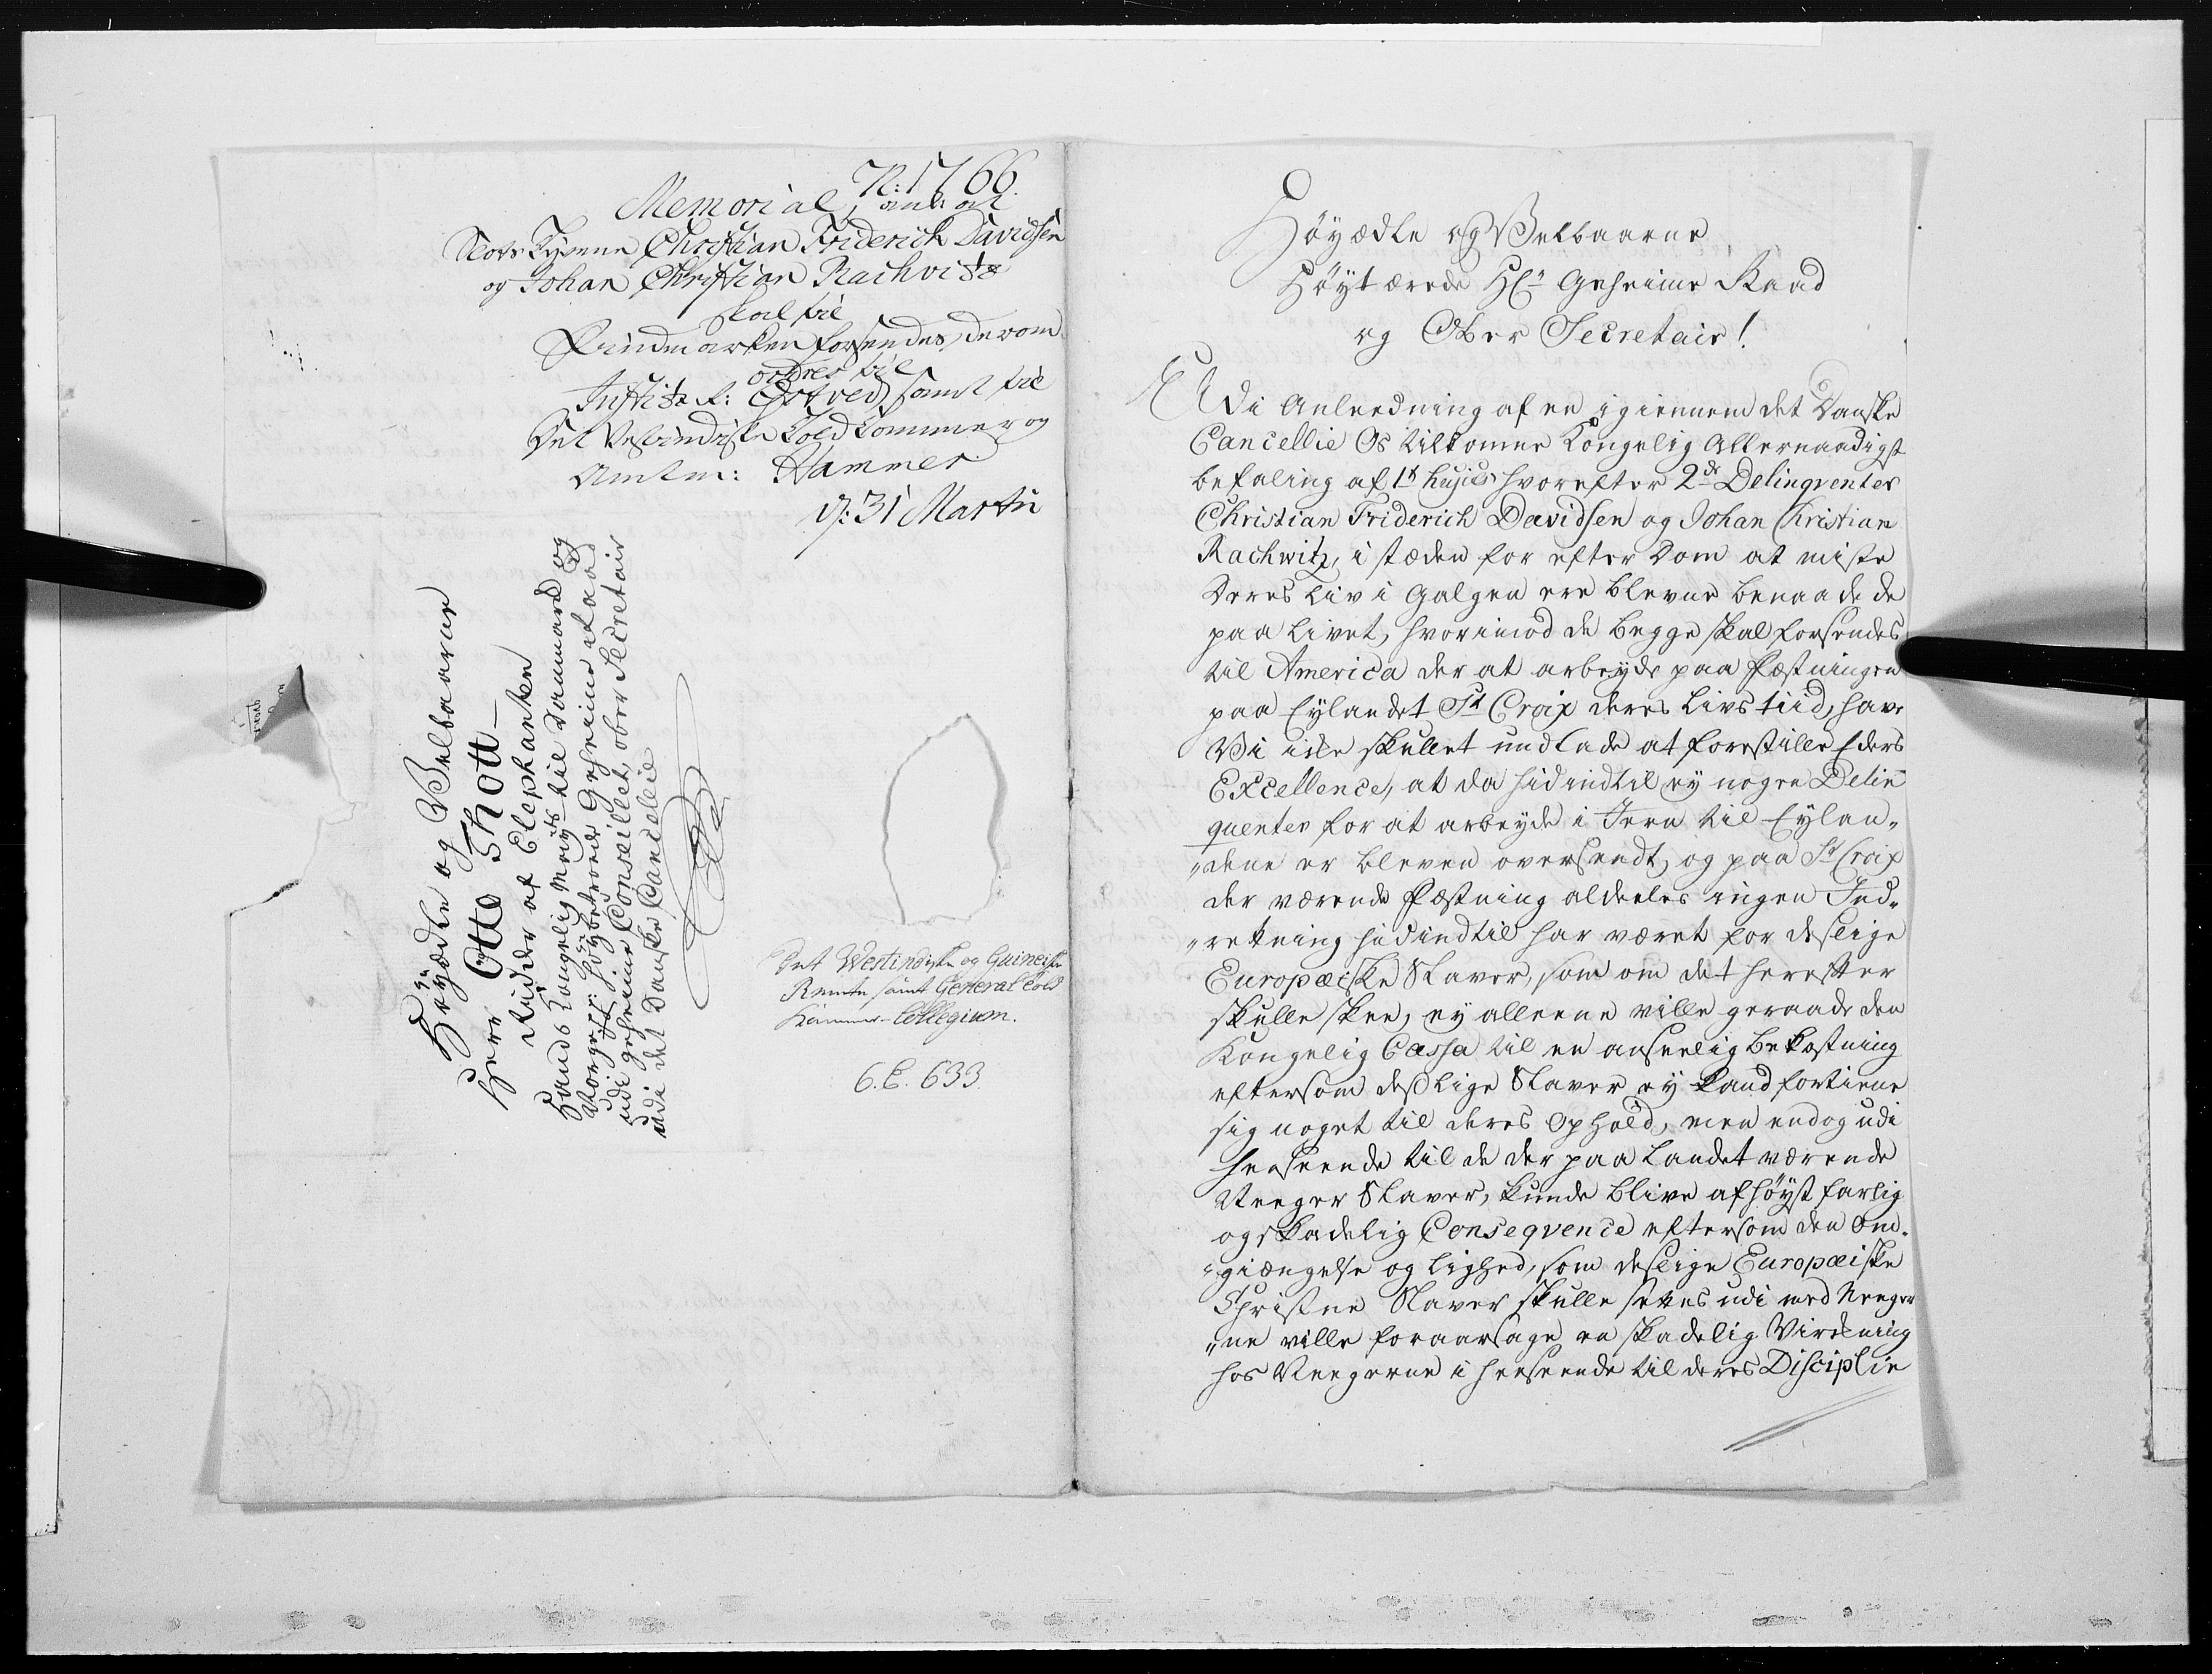 N: 1766.
Memorial, anl: at
Slots Tyvene Christian Friderich Davidsen
og Johan Christian Rachvitz
skal til
Findmarken forsendes, derom
ordres til
Justitz R: Ostved, samt til
Det Vestindiske Told Kammer og
Amtm: Hammer.
d: 31 Martii
Høyædle og Velbaarne
Herr Otto Thott
Ridder af Elephanten
Hands Kongelig Mayts til Danmark og
Norge pp: Høybetroede Geheime Raad
udi geheime Conseillet, ober Secretair
udi det Danske Cancellie
Det Westindiske og Guineiske
Rente samt General Told
Kammer-Collegium.
6.C. 633.
Høyædle og Velbaarne
Høystærede Hr Geheime Raad
og Ober Secretair!
Udi Anleedning af en igiennem det Danske
Cancellie Os tilkomne Kongelig Allernaadigst
befaling af 1t hujus hvorefter 2de Delinqventer
Christian Friderich Davidsen og Johan Christian
Rachwitz, i stæden for efter Dom at miste
Deres Liv i Galgen ere blevne benaadede
paa Livet, hvorimod de begge skal forsendes
til America der at arbeyde paa Fæstningen
paa Eylandet St Croix deres Livs tiid, have
Vi icke skullet undlade at forestille Eders
Excellence, at da hidindtil ey nogen Delin
quenter for at arbeyde i Jern til Eylan,,
,,dene er bleven oversendt, og paa St Croix
der værende Fæstning aldeeles ingen Ind,,
,,retning hidindtil har været for deslige
Europæiske Slaver, som om det herefter
skulle skee, ey alleene ville geraade den
Kongelig Cassa til en anseelig bekostning
eftersom deslige Slaver ey kand fortiene
sig noget til deres Ophold, men endog udi
henseende til de der paa Landet værende
Neeger Slaver, kunde blive af høyst farlig
og skadelig Conseqvence eftersom den Om,,
,,giængelse og lighed, som deslige Europæiske
Christne Slaver skulle settes udi med Neeger
,,ne ville foraarsage en skadelig Virckning
hos Neegerne i henseende til deres Disciplin